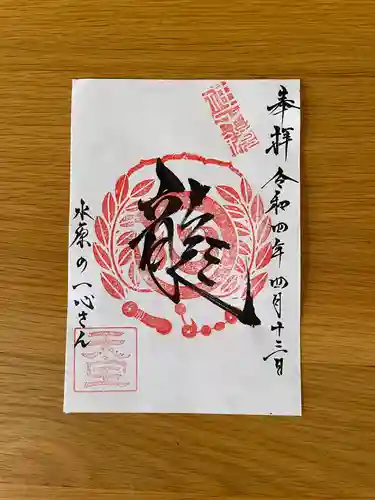 奉拝
令和四年四月十三日
龍
水原の一心さん
天聖